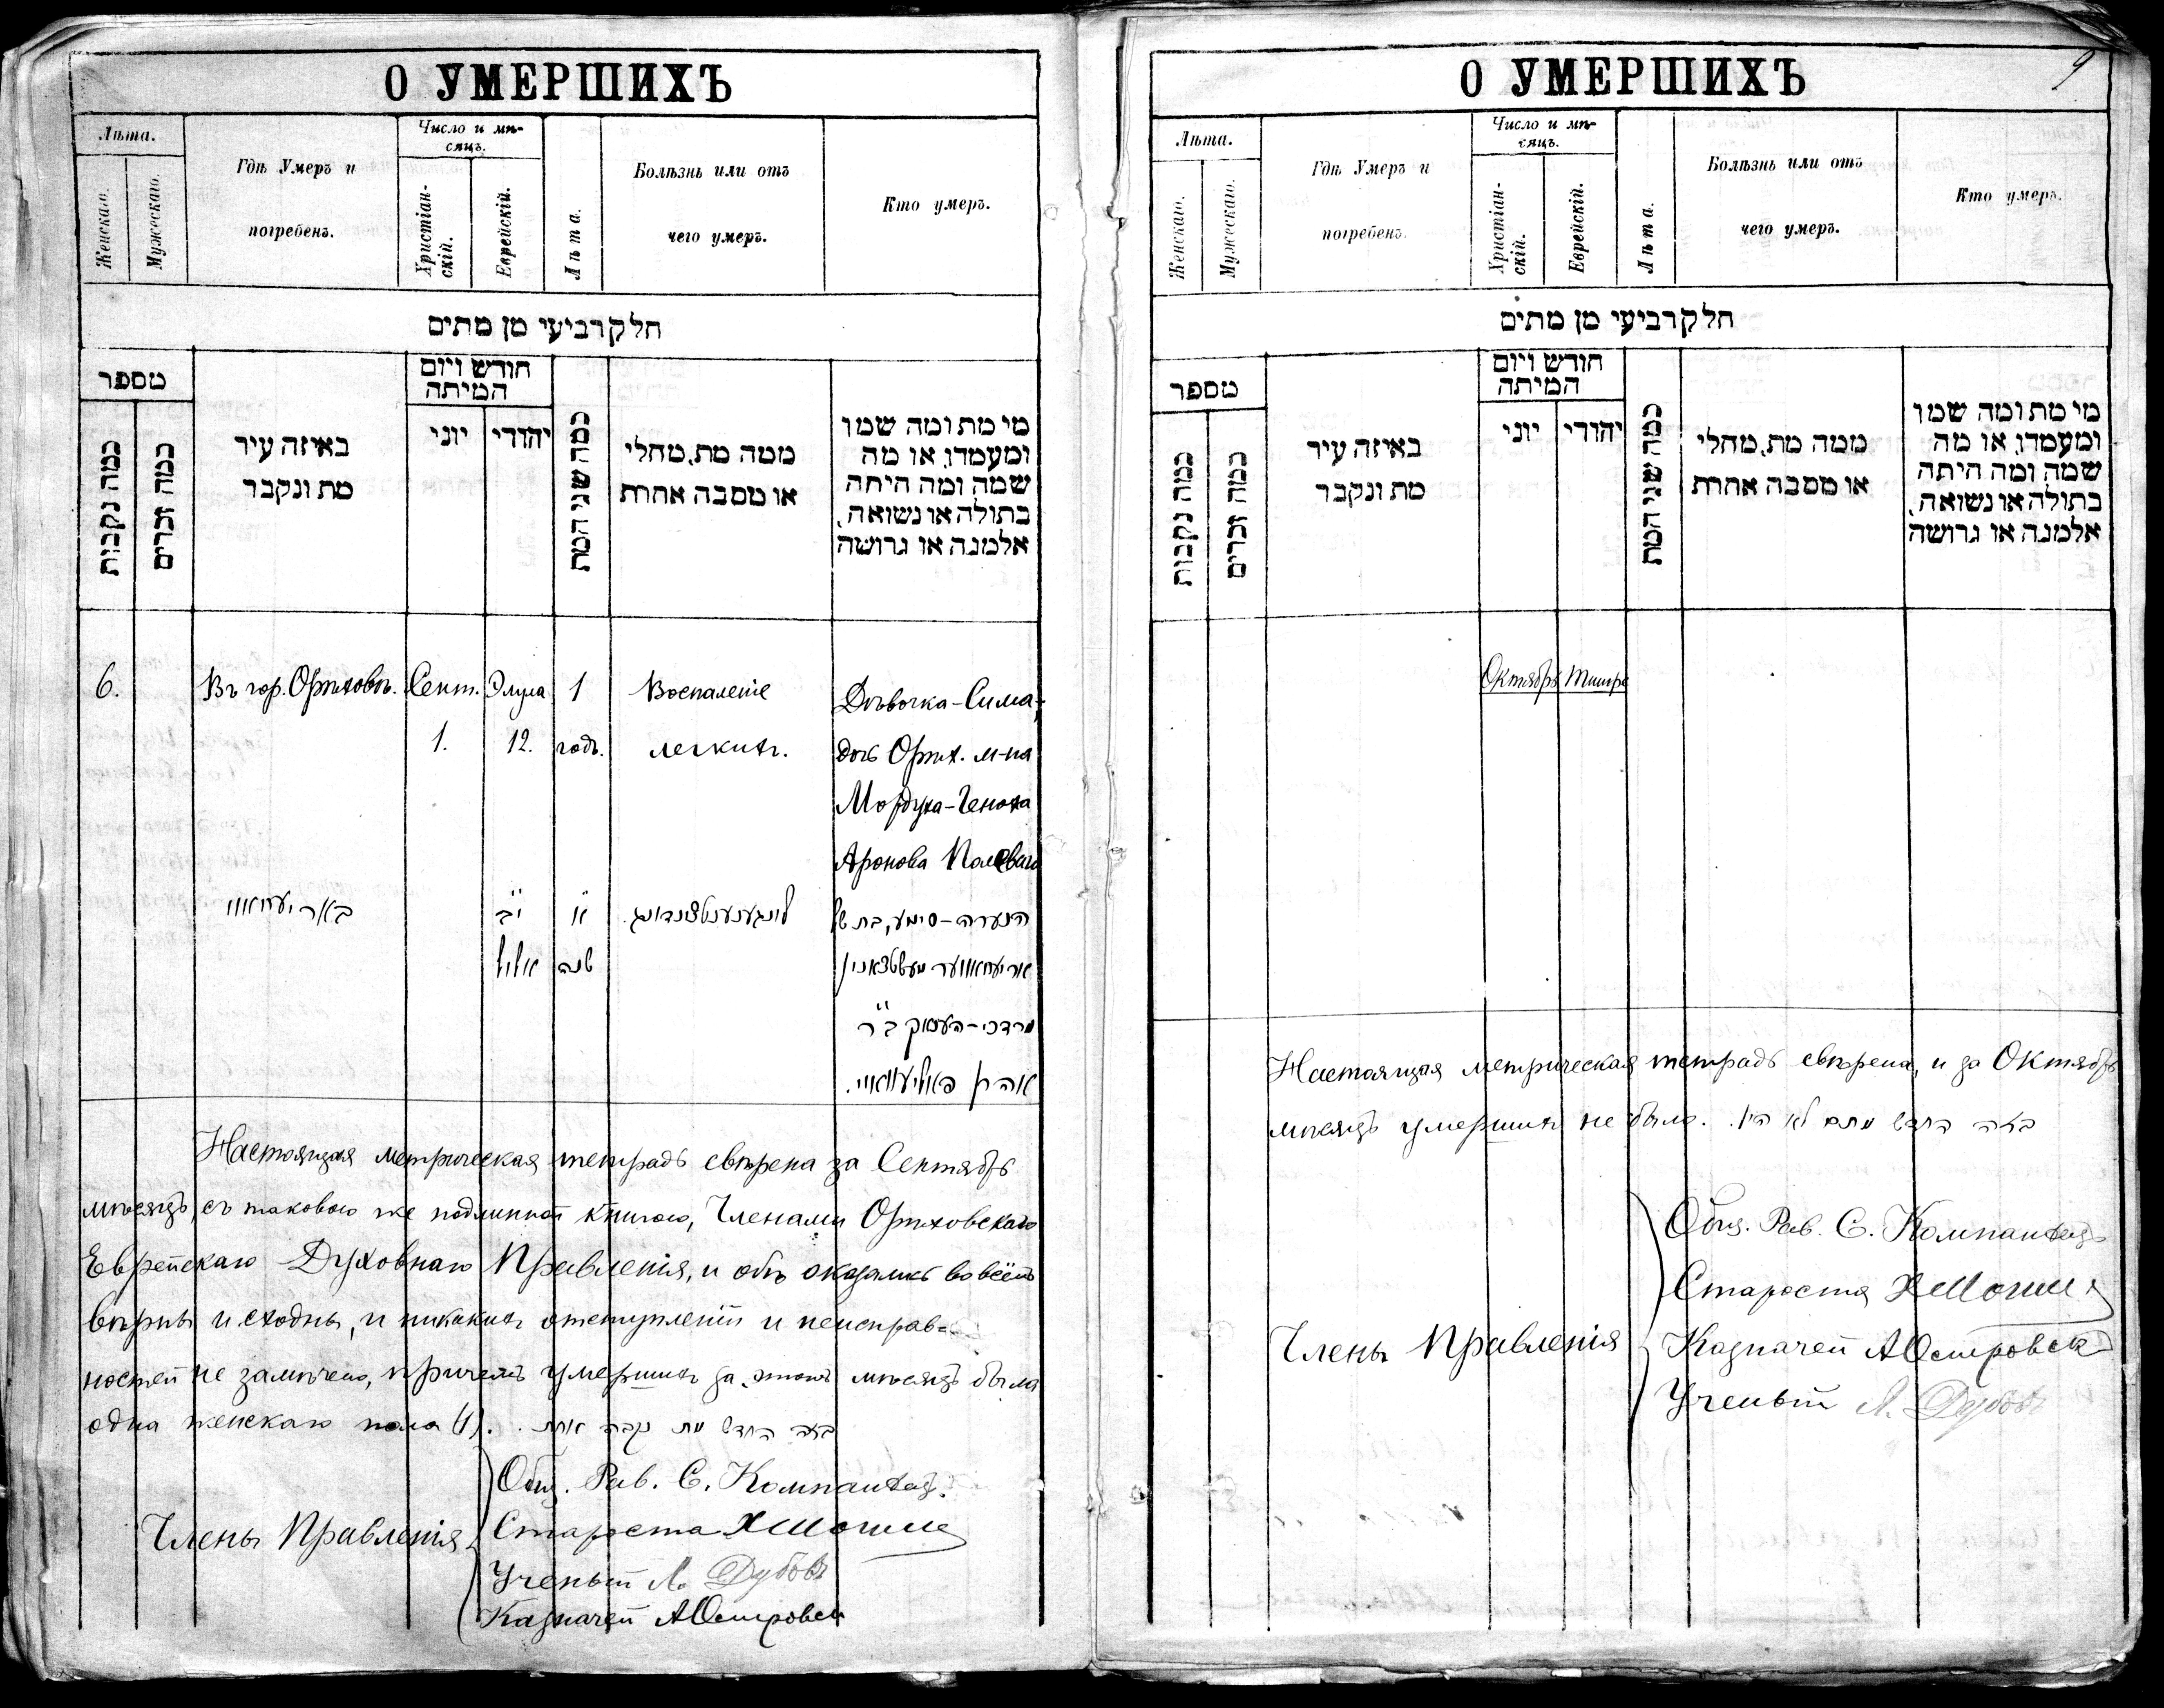 О УМЕРШИХЪ
Лѣта.
Женскаго.
Мужескаго.
Гдѣ Умеръ и
погребенъ.
Число и мѣ-
сяцъ.
Христіан-
скій.
Еврейскій.
Лѣта.
Болѣзнь или отъ
чего умеръ.
Кто умеръ.
חלק רביעי מן מתים
מספר
כמה נקבות
כמה זכרים
באיזה עיר
מת ונקבר
חודש ויום
המיתה
יוני
יהודי
כמה שני המת
ממה מת, מחלי
או מסבה אחרת
מי מת ומה שמו
ומעמדו, או מה
שמה ומה היתה
בתולה או נשואה,
אלמנה או גרושה
6.
Въ гор. Орѣховѣ.
Сент.
1.
Элула
12.
1
годъ.
Воспаленіе
легкихъ.
Дѣвочка-Сима,
дочь Орѣх. м-на
Мордуха-Геноха
Аронова Полеваго
באריעחאוו
י"ב
אלול
א'
שנה
לונגענענטצינדונג.
הנערה-סימע, בת של
אריעחאווער מעשטשאנין
מרדכי-העнאָק ב"ר
אהרן פאליעוואיי.
Настоящая метрическая тетрадь свѣрена за Сентябрь
мѣсяцъ, съ таковою же подлинной книгою, Членами Орѣховскаго
Еврейскаго Духовнаго Правленія, и обѣ оказались во всёмъ
вѣрны и сходны, и никакихъ отступленій и неисправ-
ностей не замѣчено, причемъ умершихъ за этотъ мѣсяцъ была
одна женскаго пола (1). בזה החדש מת נקבה אחת
Члены Правленія
Общ. Рав. С. Компанѣецъ.
Староста
Ученый Л. Дубовъ
Казначей А Островск
О УМЕРШИХЪ
9
Лѣта.
Женскаго.
Мужескаго.
Гдѣ Умеръ и
погребенъ.
Число и мѣ-
сяцъ.
Христіан-
скій.
Еврейскій.
Лѣта.
Болѣзнь или отъ
чего умеръ.
Кто умеръ.
חלק רביעי מן מתים
מספר
כמה נקבות
כמה זכרים
באיזה עיר
מת ונקבר
חודש ויום
המיתה
יוני
יהודי
כמה שני המת
ממה מת, מחלי
או מסבה אחרת
מי מת ומה שמו
ומעמדו, או מה
שמה ומה היתה
בתולה או נשואה,
אלמנה או גרושה
Октябрь
Тишри
Настоящая метрическая тетрадь свѣрена, и за Октябрь
мѣсяцъ умершихъ не было. בזה החדש מתים לא היו.
Члены Правленія
Общ. Рав. С. Компанѣецъ
Староста
Казначей А Островск
Ученый Л. Дубовъ